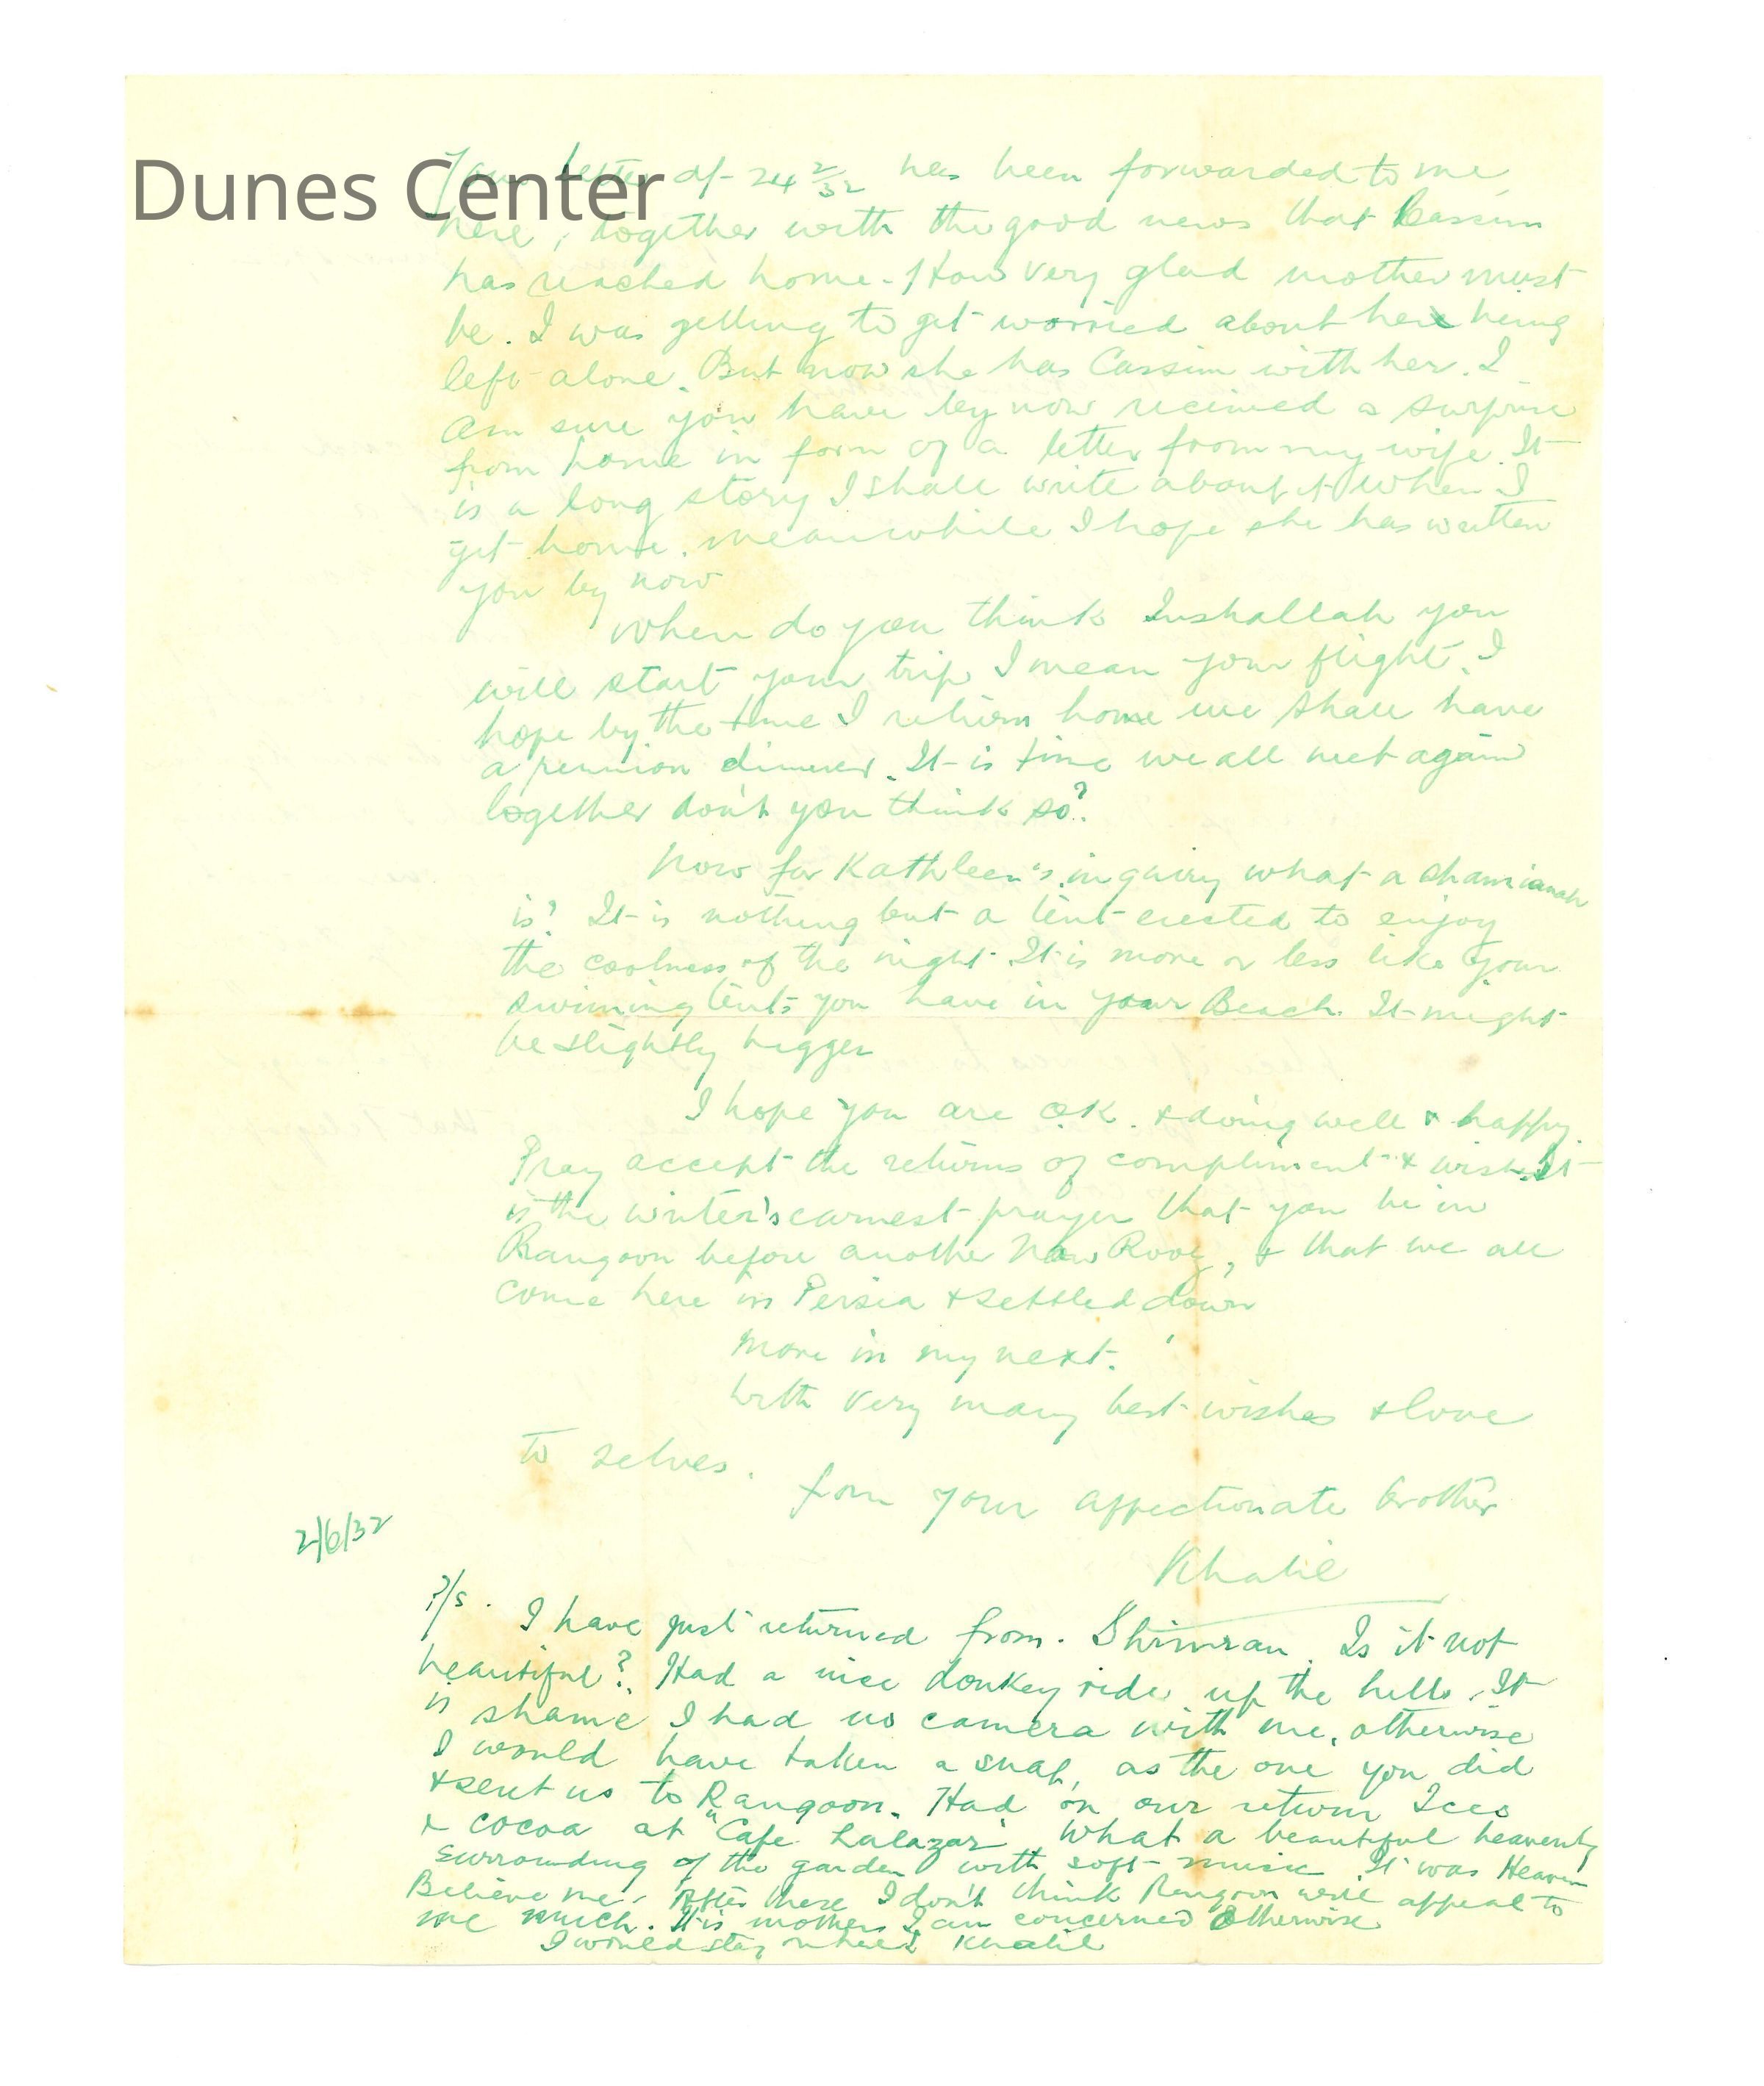 Dunes Center
Your letter of 24 2/32 has been forwarded to me,
here, together with the good news that Cassim
has reached home. How very glad mother must
be. I was getting to get worried about her being
left alone. But now she has Cassim with her. I
am sure you have by now received a surprise
from home in form of a letter from my wife. It
is a long story I shall write about it when I
get home. meanwhile I hope she has written
you by now
When do you think Inshallah you
will start your trip, I mean your flight. I
hope by the time I return home we shall have
a reunion dinner. It is time we all meet again
together don't you think so?
Now for Kathleen's inquiry what a shamianah
is? It is nothing but a tent erected to enjoy
the coolness of the night. It is more or less like your
swimming tents you have in your Beach. It might
be slightly bigger
I hope you are O.K. & doing well & happy.
Pray accept the returns of compliment & wishes. It
is the writer's earnest prayer that you be in
Rangoon before another Naw Rooz, & that we all
come here in Persia & settled down
More in my next.
With very many best wishes & love
to selves.
from your affectionate brother
Khalil
2/6/32
P/s. I have just returned from. Shimran. Is it not
beautiful? Had a nice donkey ride up the hills. It
is shame I had no camera with me, otherwise
I would have taken a snap, as the one you did
& sent us to Rangoon. Had on our return Ices
& cocoa at "Cafe Lalazar" What a beautiful heavenly
surrounding of the garden with soft music It was Heaven
Believe me. After these I don't think Rangoon will appeal to
me much. It is mother I am concerned Otherwise
I would stay Khalil